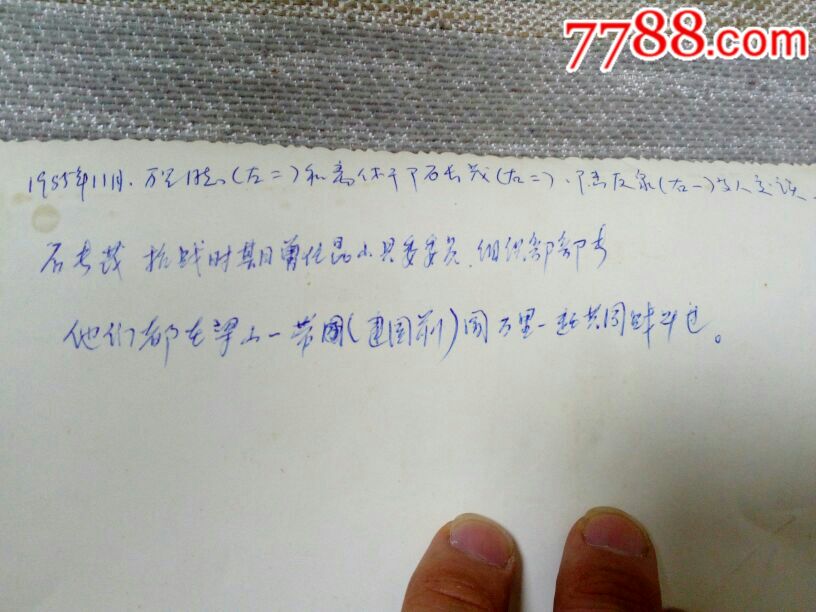 7788.com
1985年11月.万里同志(左二)和离休干部石长茂(右二)、(右一)等人交谈.
石长茂 抗战时期曾任昆山县委委员.组织部部长
他们都在梁山一带(建国前)同万里一起共同战斗过。